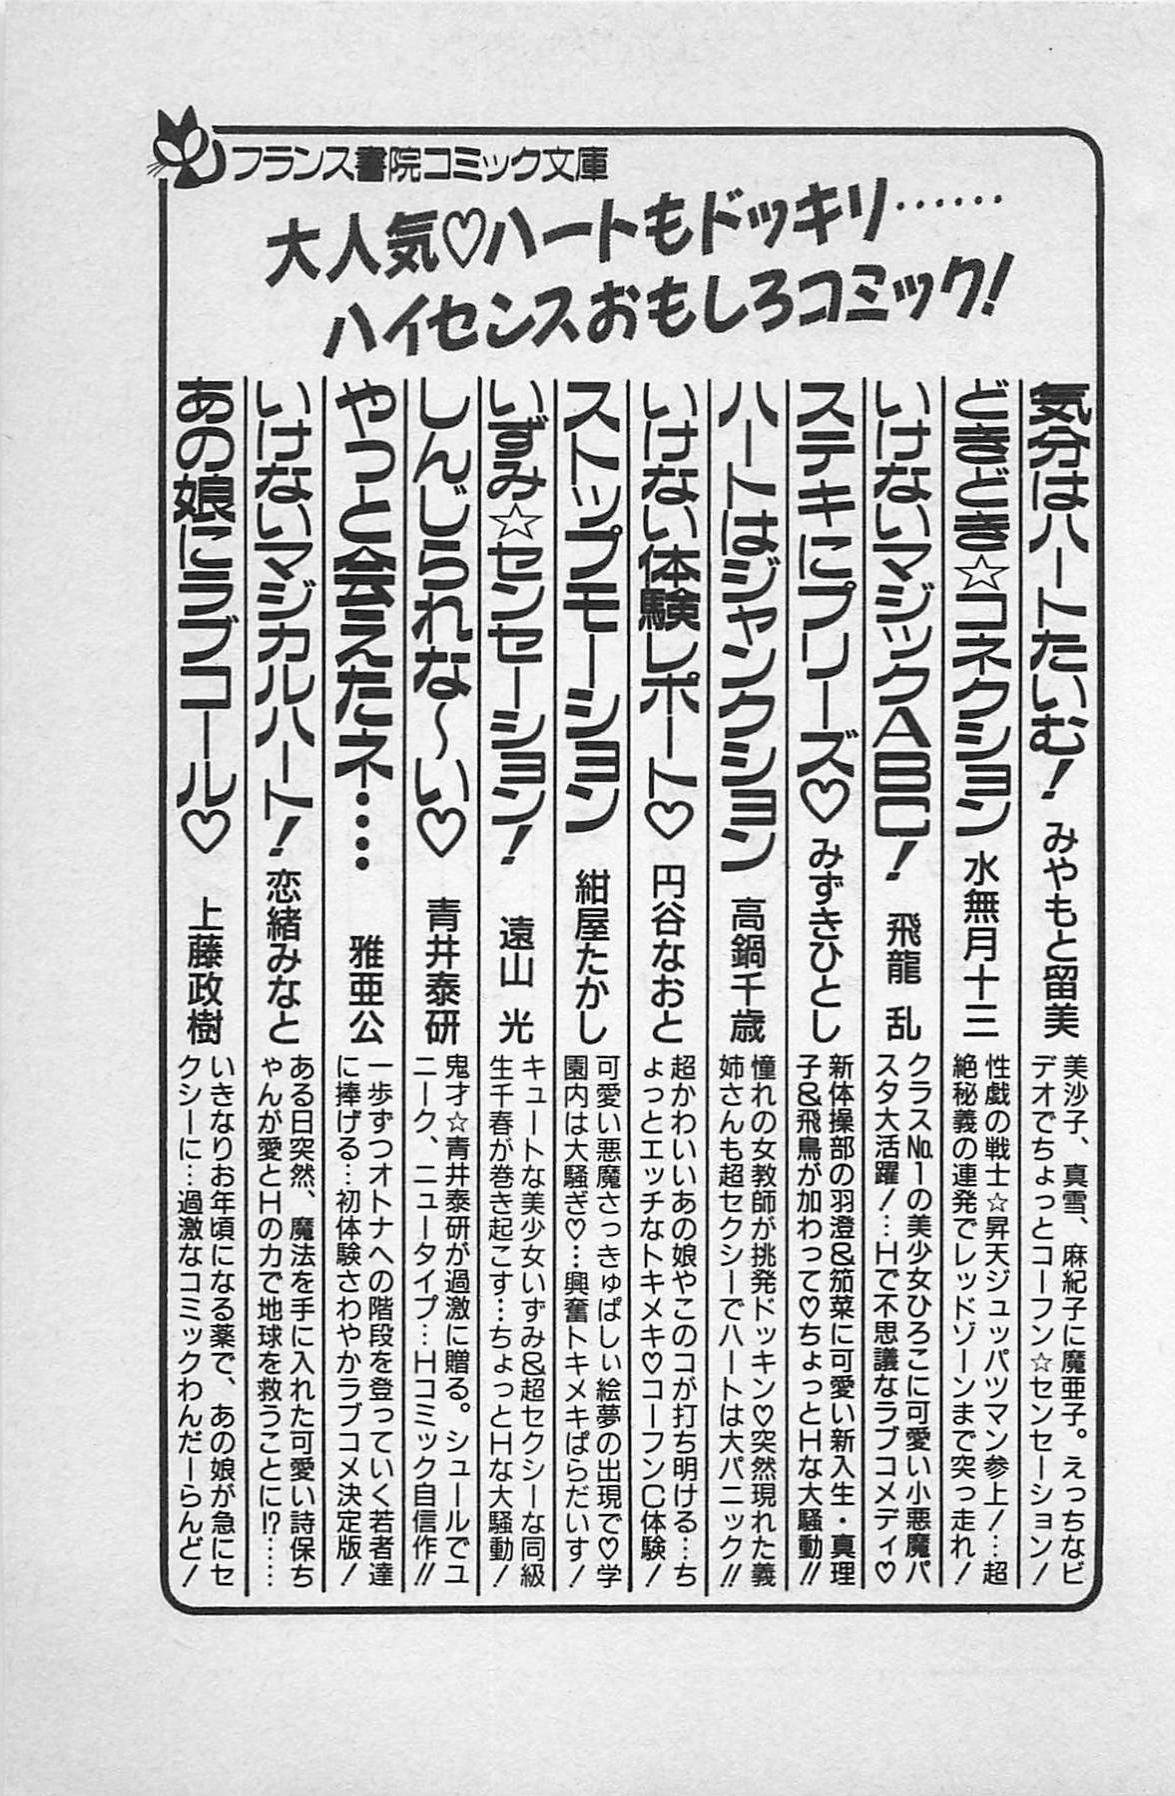 フランス書院コミック文庫
大人気♡ハートもドッキリ……
ハイセンスおもしろコミック!
気分はハートたいむ! みやもと留美
美沙子、真雪、麻紀子に魔亜子。えっちなビ
デオでちょっとコーフン☆センセーション!
どきどき☆コネクション 水無月十三
性戯の戦士☆昇天ジュッパツマン参上!…超
絶秘義の連発でレッドゾーンまで突っ走れ!
いけないマジックABC! 飛龍 乱
クラスNo.1の美少女ひろこに可愛い小悪魔パ
スタ大活躍!…Hで不思議なラブコメディ♡
ステキにプリーズ♡ みずきひとし
新体操部の羽澄&茄菜に可愛い新入生・真理
子&飛鳥が加わって♡ちょっとHな大騒動!!
ハートはジャンクション 高鍋千歳
憧れの女教師が挑発ドッキン♡突然現れた義
姉さんも超セクシーでハートは大パニック!!
いけない体験レポート♡ 円谷なおと
超かわいいあの娘やこのコが打ち明ける…ち
ょっとエッチなトキメキ♡コーフンC体験!
ストップモーション 紺屋たかし
可愛い悪魔さっきゅばしい絵夢の出現で♡学
園内は大騒ぎ♡…興奮トキメキぱらだいす!
いずみ☆センセーション! 遠山 光
キュートな美少女いずみ&超セクシーな同級
生千春が巻き起こす…ちょっとHな大騒動!
しんじられな〜い♡ 青井泰研
鬼才☆青井泰研が過激に贈る。シュールでユ
ニーク、ニュータイプ…Hコミック自信作!!
やっと会えたネ…‥ 雅亜公
一歩ずつオトナへの階段を登っていく若者達
に捧げる…初体験さわやかラブコメ決定版!
いけないマジカルハート! 恋緒みなと
ある日突然、魔法を手に入れた可愛い詩保ち
ゃんが愛とHの力で地球を救うことに!?……
あの娘にラブコール♡ 上藤政樹
いきなりお年頃になる薬で、あの娘が急にセ
クシーに…過激なコミックわんだーらんど!